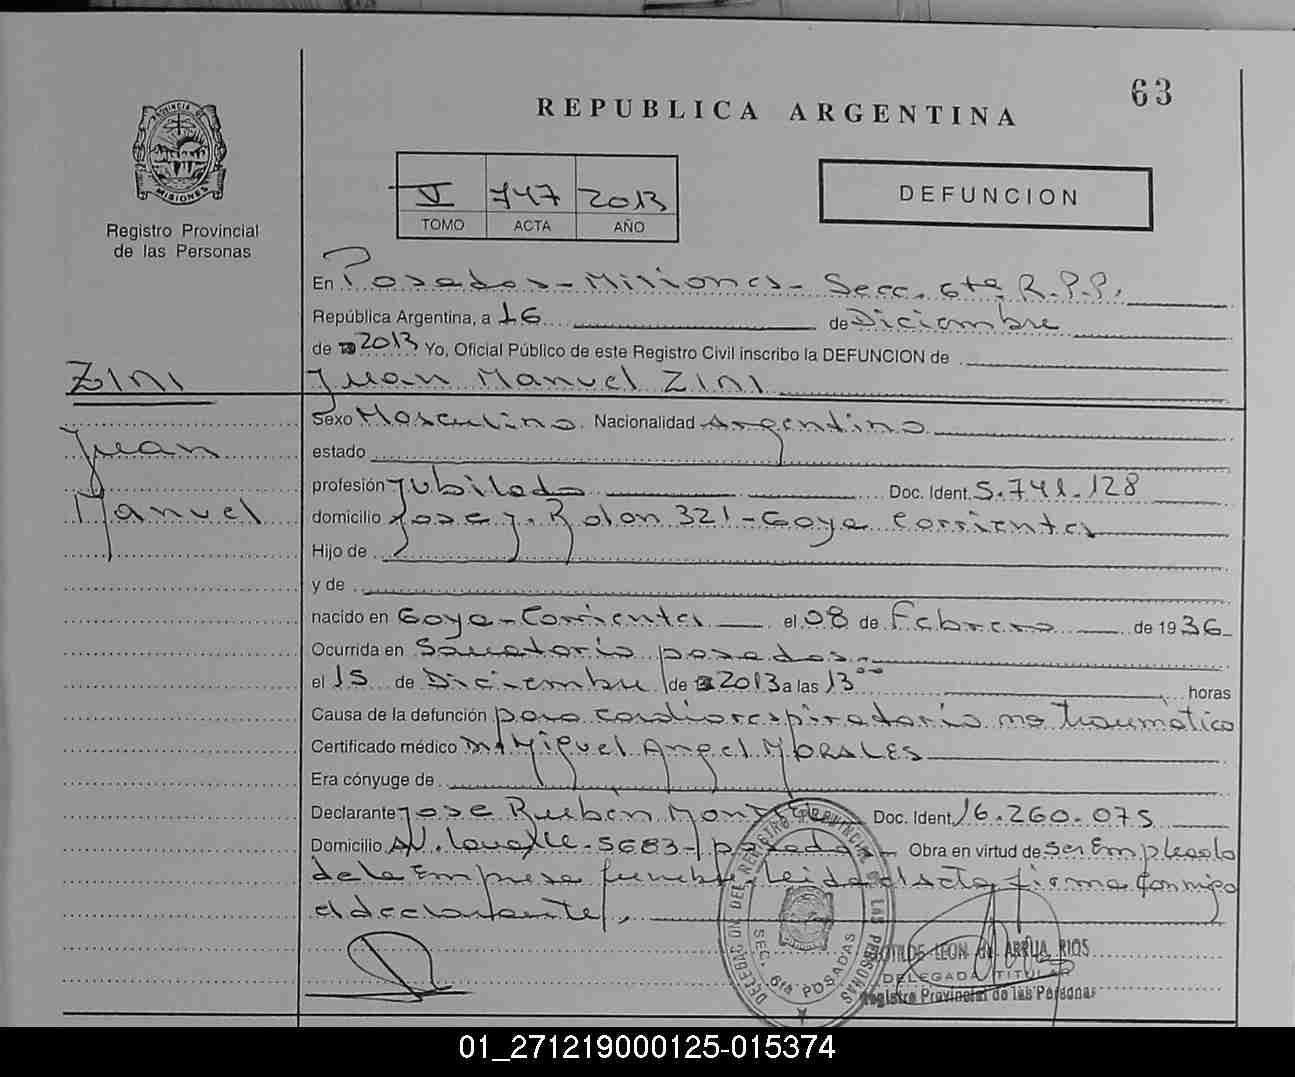 63
REPUBLICA ARGENTINA
PROVINCIA DE
MISIONES
Registro Provincial
de las Personas
V 747 2013
TOMO ACTA AÑO
DEFUNCION
En Posadas - Misiones - Secc. 6ta. R.P.P.
República Argentina, a 16 de Diciembre
de 2013 Yo, Oficial Público de este Registro Civil inscribo la DEFUNCION de
ZINI
Juan Manuel ZINI
Juan
Manuel
Sexo Masculino. Nacionalidad Argentino
estado
profesión Jubilado Doc. Ident. 5.741.128
domicilio Jose J. Rolon 321 - Goya Corrientes
Hijo de
y de
nacido en Goya - Corrientes el 08 de Febrero de 1936
Ocurrida en Sanatorio posadas.
el 15 de Diciembre de 2013 a las 13 00 horas
Causa de la defunción paro cardiorespiratorio no traumático
Certificado médico Dr Miguel Angel MORALES
Era cónyuge de
Declarante Jose Ruben Doc. Ident. 16.260.075
Domicilio AV. Lavalle 5683 - posadas - Obra en virtud de ser Empleado
de la Empresa funebre, leida el Acta firma conmigo
el declarante.
DELEGACION DEL REGISTRO PROVINCIAL DE LAS PERSONAS
SEC. 6ta POSADAS
LEON de ARRUA RIOS
DELEGADA TITULAR
Registro Provincial de las Personas
01_271219000125-015374